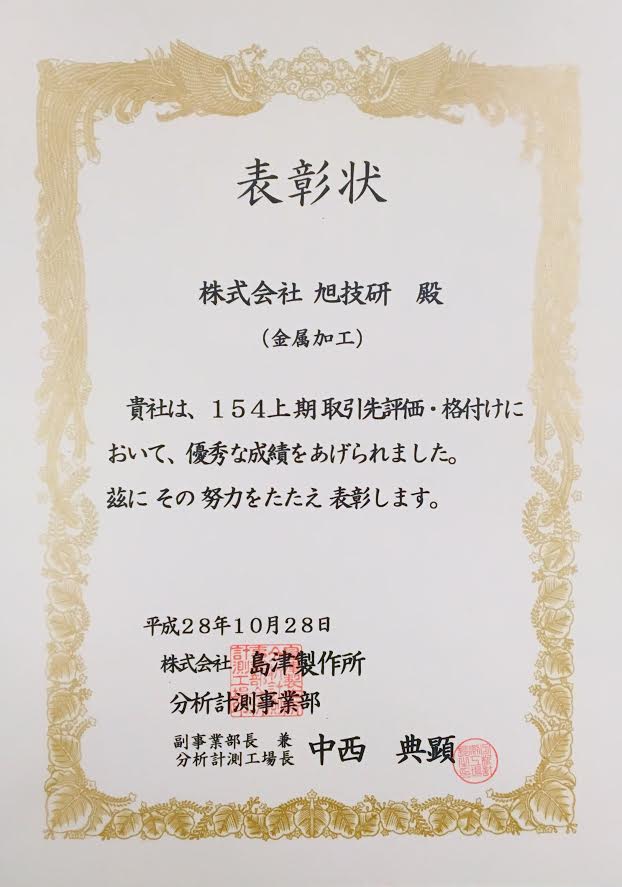 表彰状
株式会社 旭技研 殿
(金属加工)
貴社は、154上期取引先評価・格付けに
おいて、優秀な成績をあげられました。
茲に その 努力をたたえ 表彰します。
平成28年10月28日
株式会社 島津製作所
分析計測事業部
副事業部長 兼
分析計測工場長 中西 典顕